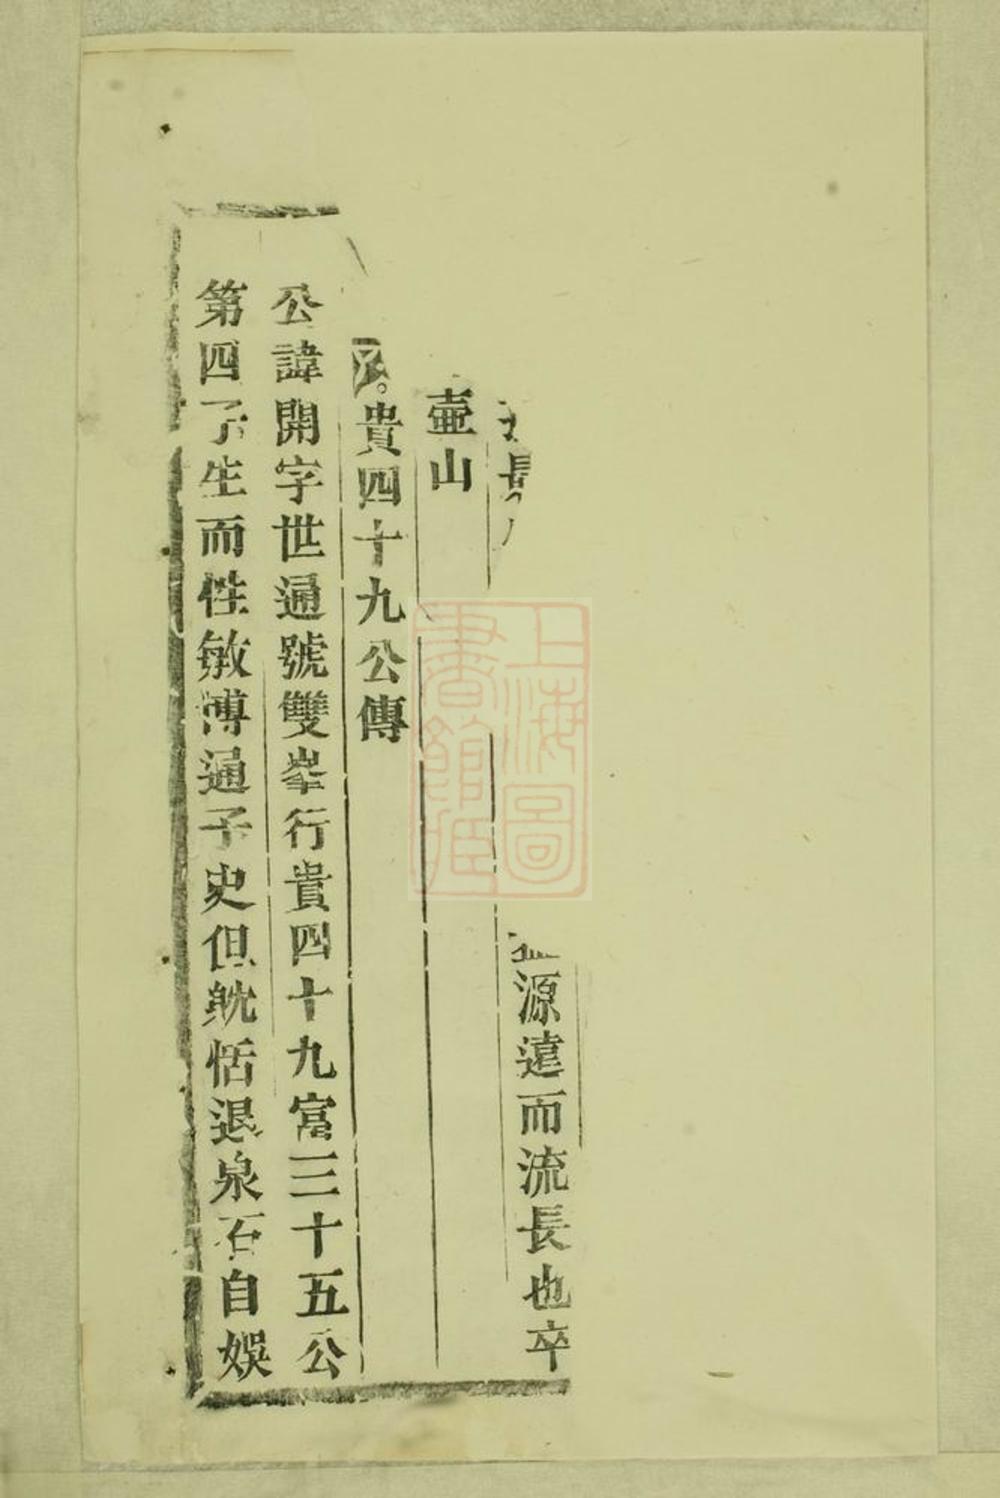 源遠而流長也卒
壷山
貴四十九公傳
公諱開字世通號雙峯行貴四十九富三十五公
第四子生而性敏博通子史但躭恬退泉石自娛
上海圖書館藏